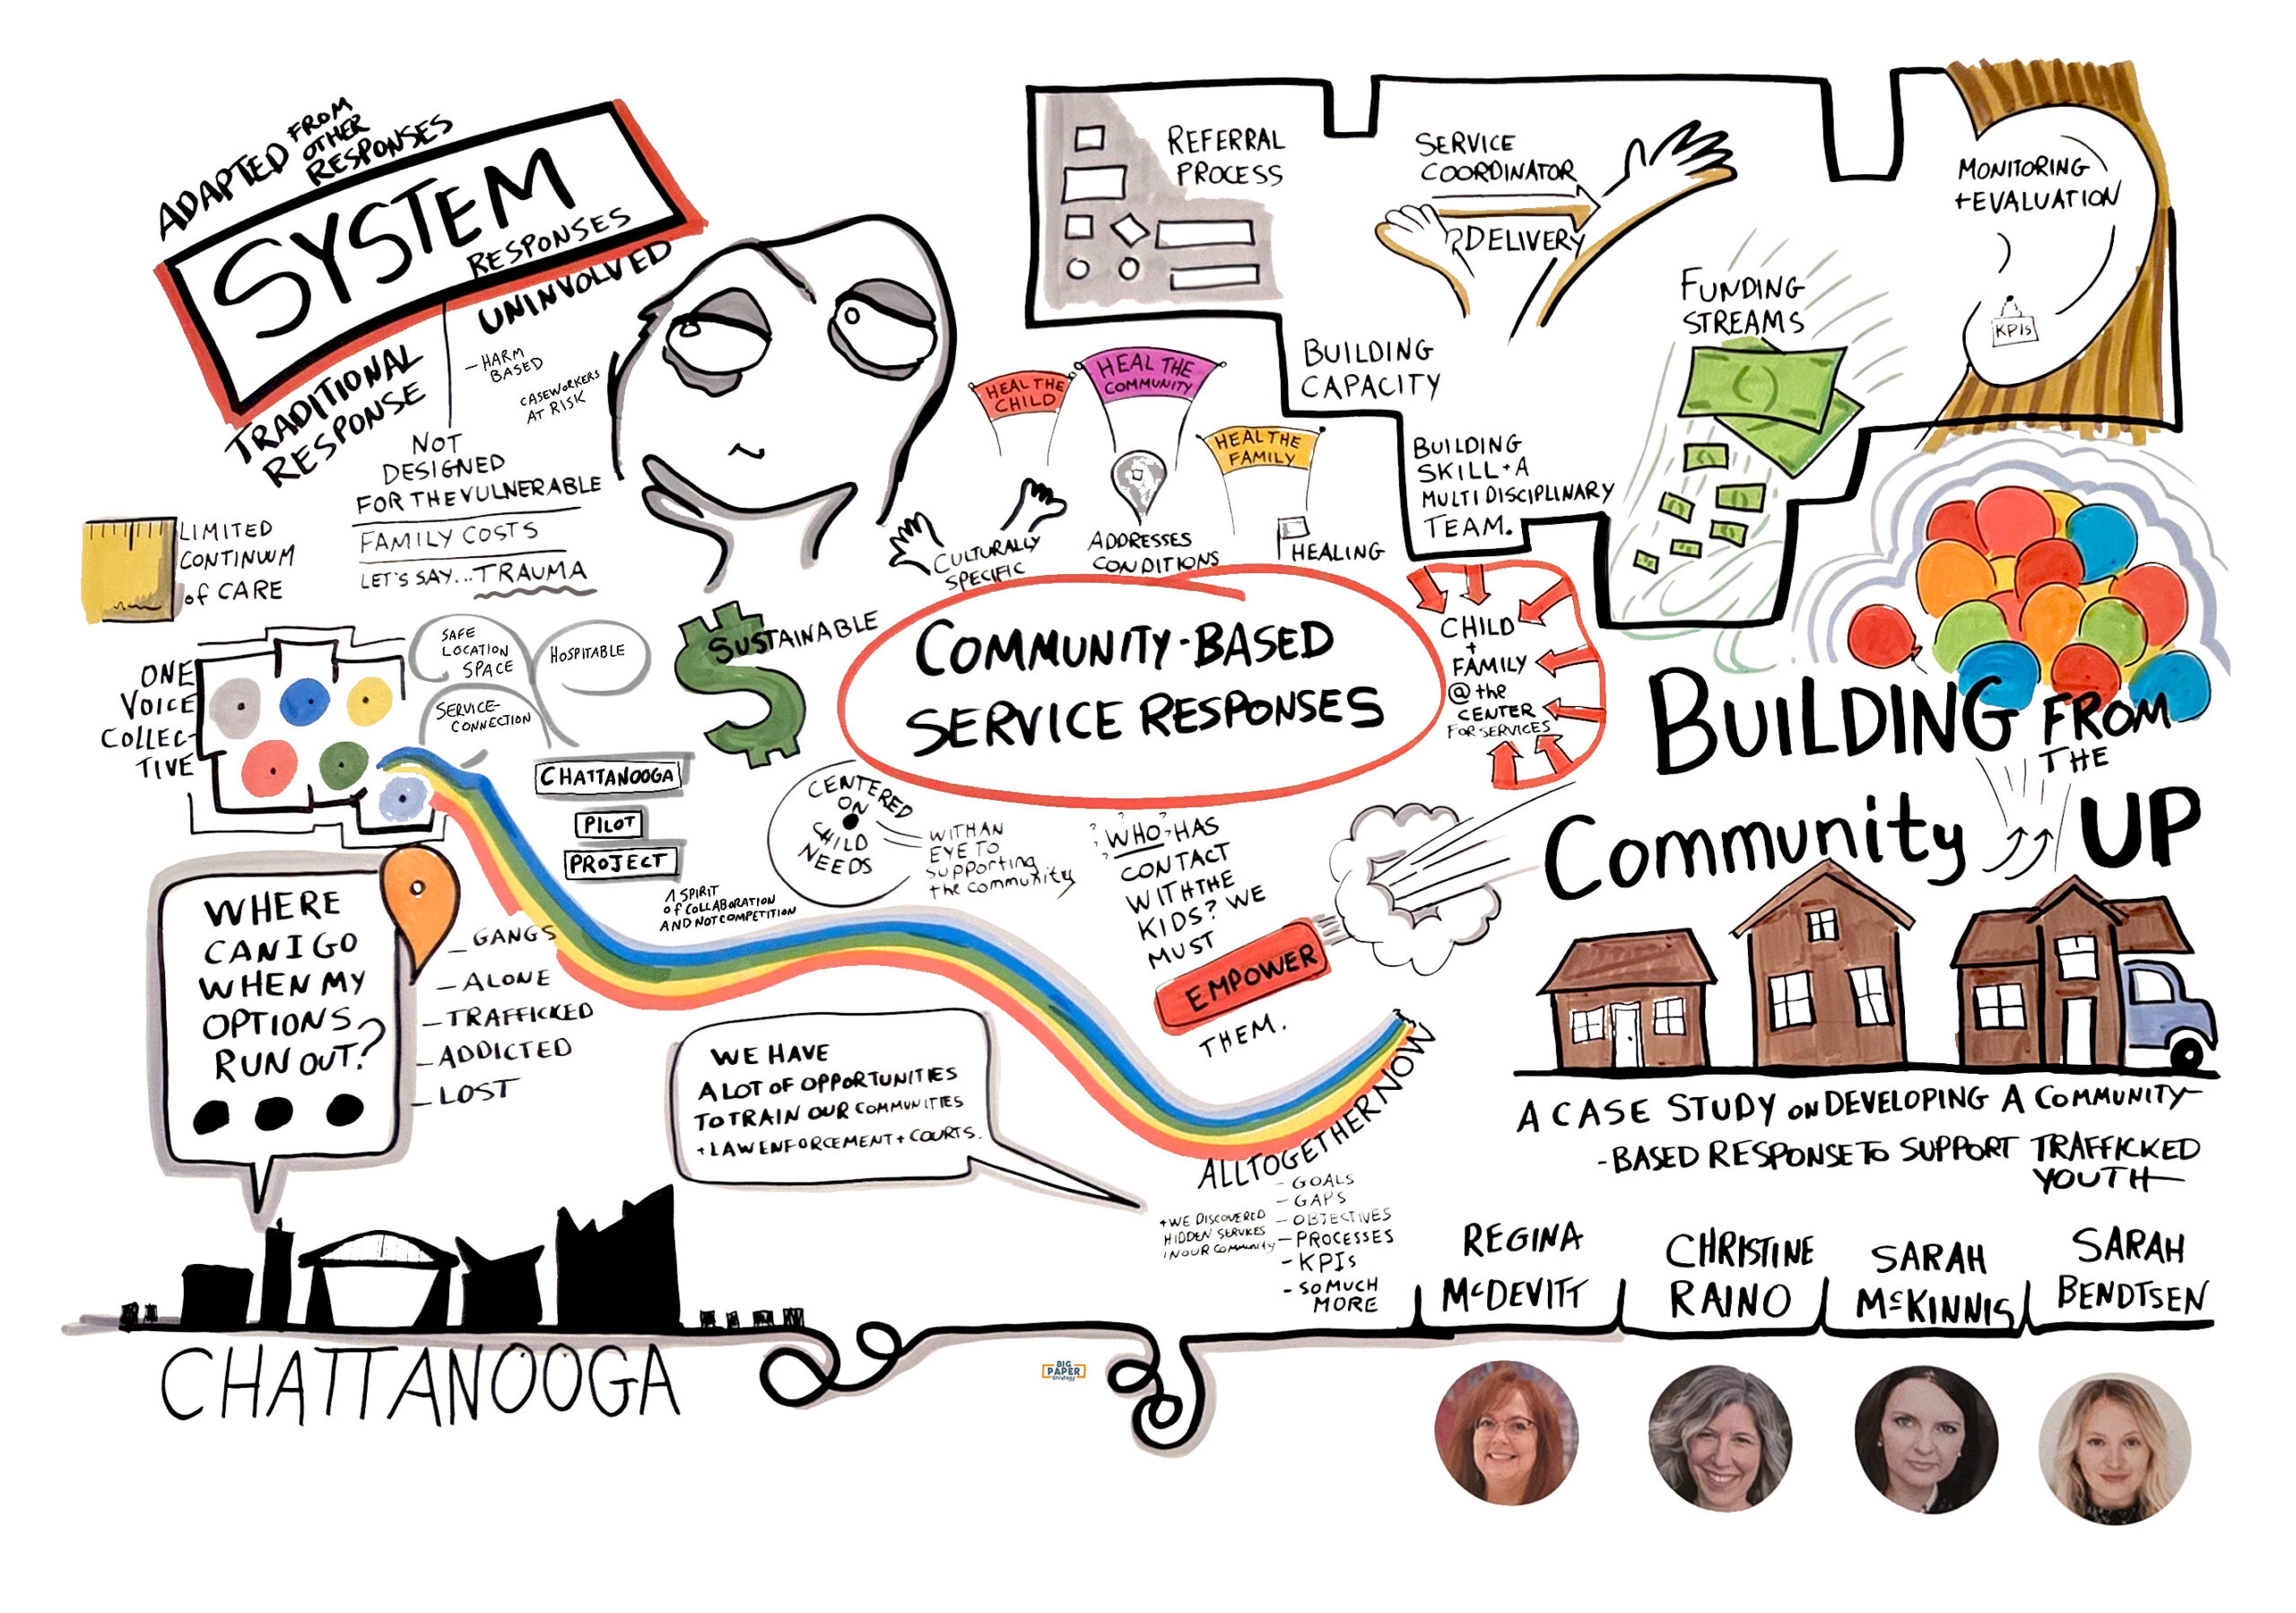 ADAPTED FROM
OTHER
RESPONSES
SYSTEM
RESPONSES
TRADITIONAL
RESPONSE
UNINVOLVED
- HARM
BASED
CASEWORKERS
AT RISK
NOT
DESIGNED
FOR THE VULNERABLE
FAMILY COSTS
LET'S SAY...TRAUMA
LIMITED
CONTINUUM
of CARE
ONE
VOICE
COLLEC-
TIVE
SAFE
LOCATION
SPACE
HOSPITABLE
SERVICE-
CONNECTION
CHATTANOOGA
PILOT
PROJECT
SUSTAINABLE
A SPIRIT
of COLLABORATION
AND NOT COMPETITION
WHERE
CAN I GO
WHEN MY
OPTIONS
RUN OUT?
- GANGS
- ALONE
- TRAFFICKED
- ADDICTED
- LOST
CHATTANOOGA
HEAL THE
CHILD
HEAL THE
COMMUNITY
HEAL THE
FAMILY
CULTURALLY
SPECIFIC
ADDRESSES
CONDITIONS
HEALING
COMMUNITY-BASED
SERVICE RESPONSES
CHILD
+
FAMILY
@ the
CENTER
FOR SERVICES
CENTERED
ON
CHILD
NEEDS
WITH AN
EYE TO
supporting
the community
? ? ?
WHO? HAS
CONTACT
WITH THE
KIDS? WE
MUST
EMPOWER
THEM.
WE HAVE
A LOT OF OPPORTUNITIES
TO TRAIN OUR COMMUNITIES
+ LAW ENFORCEMENT + COURTS.
ALLTOGETHER NOW
- GOALS
- GAPS
- OBJECTIVES
- PROCESSES
- KPIs
- SO MUCH
MORE
+ WE DISCOVERED
HIDDEN SERVICES
IN OUR COMMUNITY
REFERRAL
PROCESS
SERVICE
COORDINATOR
DELIVERY
BUILDING
CAPACITY
BUILDING
SKILL + A
MULTIDISCIPLINARY
TEAM.
FUNDING
STREAMS
MONITORING
+ EVALUATION
KPIs
BUILDING FROM
THE
Community UP
A CASE STUDY ON DEVELOPING A COMMUNITY
-BASED RESPONSE TO SUPPORT TRAFFICKED
YOUTH
REGINA
McDEVITT
CHRISTINE
RAINO
SARAH
McKINNIS
SARAH
BENDTSEN
BIG
PAPER
strategy